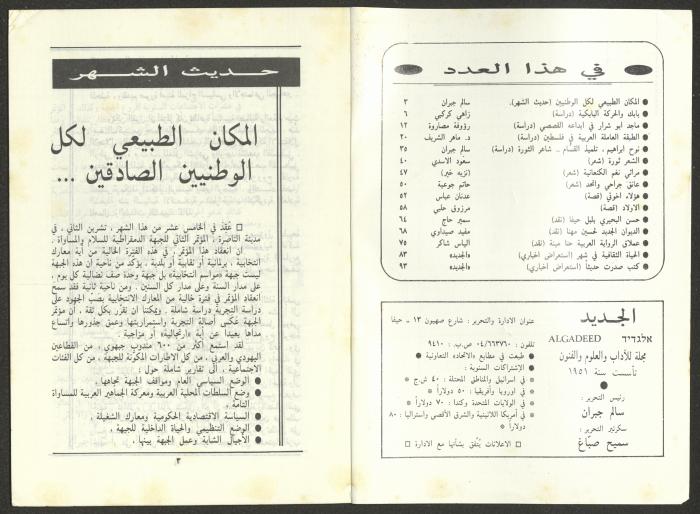 في هذا العدد
● المكان الطبيعي لكل الوطنيين (حديث الشهر). سالم جبران ٣
● بابك والحركة البابكية (دراسة) زاهي كركبي ٦
● ماجد ابو شرار في ابداعه القصصي (دراسة) رؤوفة مصاروة ١٢
● الطبقة العاملة العربية في فلسطين (دراسة) د. ماهر الشريف ٢٠
● نوح ابراهيم، تلميذ القسّام .. شاعر الثورة (دراسة) سالم جبران ٣٥
● الشعر ثورة (شعر) سعود الاسدي ٤٠
● مراثي نغم الكنعانية (شعر) (نزيه خير) ٤٧
● عانق جراحي واتحد (شعر) حاتم جوعية ٥٠
● هؤلاء اخوتي (قصة) عدنان عباس ٥٢
● الاولاد (قصة) مرزوق حلبي ٥٨
● حسن البحيري بلبل حيفا (نقد) سمير حاج ٦٤
● الديوان الجديد لحسين مهنا (نقد) مفيد صيداوي ٦٨
● عملاق الرواية العربية حنا مينة (نقد) الياس شاكر ٧٥
● الحياة الثقافية في شهر (استعراض اخباري) «الجديد» ٨٣
● كتب صدرت حديثاً (استعراض اخباري) «الجديد» ٩٣
الجديد
ALGADEED אלגדיד
مجلة للآداب والعلوم والفنون
تأسست سنة ١٩٥١
رئيس التحرير:
سالم جبران
سكرتير التحرير:
سميح صبّاغ
عنوان الادارة والتحرير: شارع صهيون ١٣ - حيفا
تلفون: ٠٤/٦٦٣٧٧٠ ص.ب. : ٩٤١٠
● طبعت في مطابع «الاتحاد» التعاونية ●
● الاشتراكات السنوية:
في اسرائيل والمناطق المحتلة: ٤٠ ش.ج
في اوروبا وأفريقيا: ٥٠ دولاراً
في الولايات المتحدة وكندا: ٧٠ دولاراً
في أمريكا اللاتينية والشرق الاقصى واستراليا: ٨٠ دولاراً
□ الاعلانات يتّفق بشأنها مع الادارة □
حديث الشهر
المكان الطبيعي لكل
الوطنيين الصادقين ...
□ عُقِدَ في الخامس عشر من هذا الشهر، تشرين الثاني، في
مدينة الناصرة، المؤتمر الثاني للجبهة الدمقراطية للسلام والمساواة.
ان انعقاد هذا المؤتمر، في هذه الفترة الخالية من أية معارك
انتخابية، برلمانية أو نقابية أو بلدية. يؤكد من ناحية ان هذه الجبهة
ليست جبهة «مواسم انتخابية» بل جبهة وحدة صف نضالية كل يوم،
على مدار السنة وعلى مدار كل السنين. ومن ناحية ثانية فقد سمح
انعقاد المؤتمر في فترة خالية من المعارك الانتخابية بصبّ الجهود على
دراسة التجربة دراسة شاملة. ويمكننا ان نقرّر بكل ثقة، ان مؤتمر
الجبهة عكس أصالة التجربة واستمراريتها وعمق جذورها واتساع
مداها بعيداً عن أية «ارتجالية» أو مزاجية.
لقد استمع أكثر من ٦٠٠ مندوب جبهوي، من القطاعين
اليهودي والعربي، من كل الاطارات المكوّنة للجبهة، من كل الفئات
الاجتماعية، الى تقارير شاملة حول:
● الوضع السياسي العام ومواقف الجبهة تجاهها،
● وضع السلطات المحلية العربية ومعركة الجماهير العربية للمساواة
التامّة،
● السياسة الاقتصادية الحكومية ومعارك الشغيلة،
● الوضع التنظيمي والحياة الداخلية للجبهة،
● الأجيال الشابة وعمل الجبهة بينها،
٣